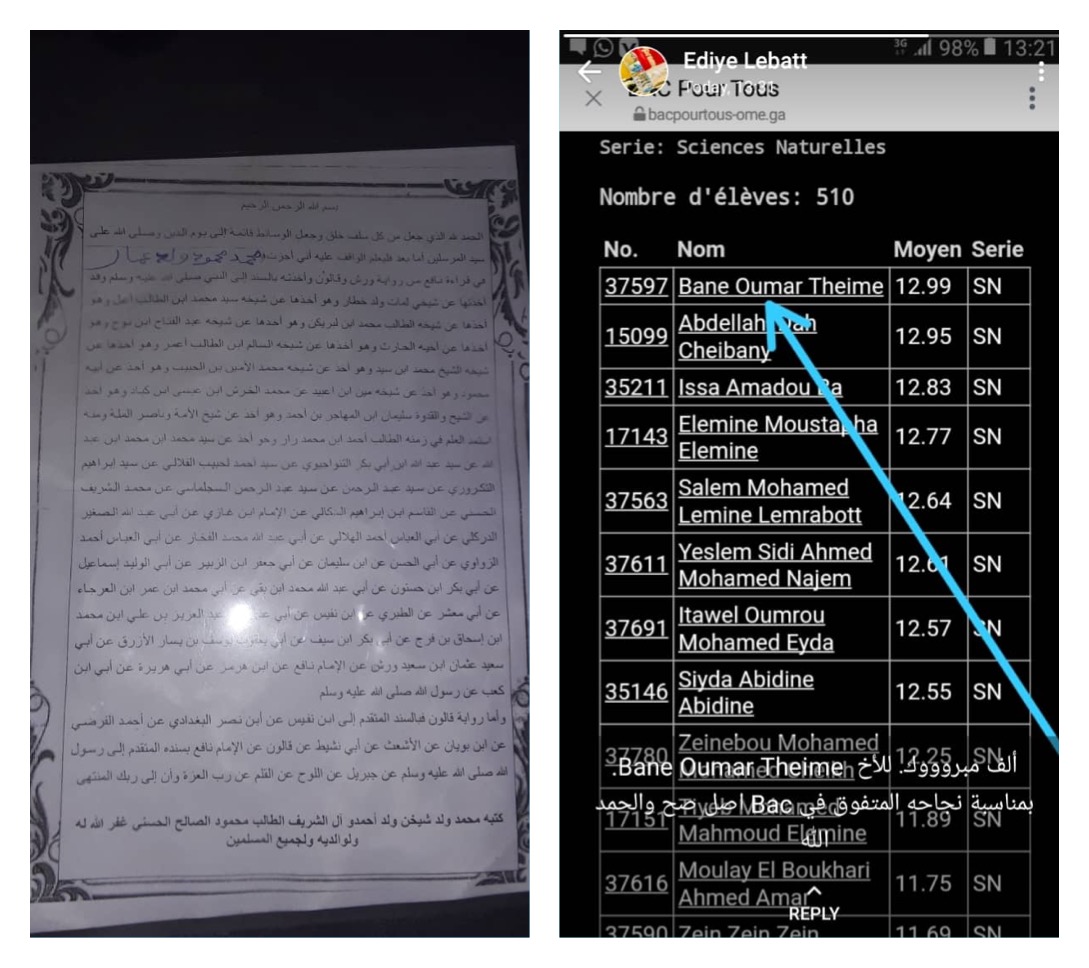 بسم الله الرحمن الرحيم
الحمد لله الذي جعل من كل سلف خلق وجعل الوسائط قائمة إلى يوم الدين وصلى الله على
سيد المرسلين أما بعد فليعلم الواقف عليه أني أجزت محمد محمود ولد عمار
في قراءة نافع من رواية ورش وقالون وأخذته بالسند إلى النبي صلى الله عليه وسلم وقد
أخذتها عن شيخي لمات ولد خطار وهو أخذها عن شيخه سيد محمد ابن الطالب أعل وهو
أخذها عن شيخه الطالب محمد ابن لبريكن وهو أخذها عن شيخه عبد الفتاح ابن نوح وهو
أخذها عن أخيه الحارث وهو أخذها عن شيخه السالم ابن الطالب أعمر وهو أخذها عن
شيخه الشيخ محمد ابن سيد وهو أخذ عن شيخه محمد الأمين بن الحبيب وهو أخذ عن أبيه
محمود وهو أخذ عن شيخه مين ابن اعبيد عن محمد الخرش ابن عيسى ابن كباد وهو أخذ
عن الشيخ والقدوة سليمان ابن المهاجر بن أحمد وهو أخذ عن شيخ الأمة وناصر الملة ومنه
استمد العلم في زمنه الطالب أحمد ابن محمد رار وهو أخذ عن سيد محمد ابن محمد ابن عبد
الله عن سيد عبد الله ابن أبي بكر التنواجيوي عن سيد أحمد لحبيب الفلالي عن سيد إبراهيم
التكروري عن سيد عبد الرحمن عن سيد عبد الرحمن السجلماسي عن محمد الشريف
الحسني عن القاسم ابن إبراهيم الدكالي عن الإمام ابن غازي عن أبي عبد الله الصغير
الدركلي عن أبي العباس أحمد الهلالي عن أبي عبد الله محمد الفخار عن أبي العباس أحمد
الزواوي عن أبي الحسن عن ابن سليمان عن أبي جعفر ابن الزبير عن أبي الوليد إسماعيل
عن أبي بكر ابن حسنون عن أبي عبد الله محمد ابن بقي عن أبي محمد ابن عمر ابن العرجاء
عن أبي معشر عن الطبري عن ابن نفيس عن أبي عبد العزيز بن علي ابن محمد
ابن إسحاق بن فرج عن أبي بكر ابن سيف عن أبي يعقوب يوسف بن يسار الأزرق عن أبي
سعيد عثمان ابن سعيد ورش عن الإمام نافع عن ابن هرمز عن أبي هريرة عن أبي ابن
كعب عن رسول الله صلى الله عليه وسلم
وأما رواية قالون فبالسند المتقدم إلى ابن نفيس عن أبن نصر البغدادي عن أحمد الفرضي
عن ابن بويان عن الأشعث عن أبي نشيط عن قالون عن الإمام نافع بسنده المتقدم إلى رسول
الله صلى الله عليه وسلم عن جبريل عن اللوح عن القلم عن رب العزة وأن إلى ربك المنتهى
كتبه محمد ولد شيخن ولد أحمدو آل الشريف الطالب محمود الصالح الحسني غفر الله له
ولوالديه ولجميع المسلمين
3G 98% 13:21
Ediye Lebatt
BAC Pour Tous
Today,
bacpourtous-ome.ga
Serie: Sciences Naturelles
Nombre d'élèves: 510
No. Nom Moyen Serie
37597 Bane Oumar Theime 12.99 SN
15099 Abdellahi Dah Cheibany 12.95 SN
35211 Issa Amadou Ba 12.83 SN
17143 Elemine Moustapha Elemine 12.77 SN
37563 Salem Mohamed Lemine Lemrabott 12.64 SN
37611 Yeslem Sidi Ahmed Mohamed Najem 12.61 SN
37691 Itawel Oumrou Mohamed Eyda 12.57 SN
35146 Siyda Abidine Abidine 12.55 SN
37780 Zeinebou Mohamed Mohamed Cheikh 12.25 SN
ألف مبروووك. للأخ Bane Oumar Theime.
بمناسبة نجاحه المتفوق في Bac اصل صح والحمد
الله
17151 Mohamed Mahmoud Elemine 11.89 SN
37616 Moulay El Boukhari Ahmed Amar 11.75 SN
REPLY
37590 Zein Zein Zein 11.69 SN